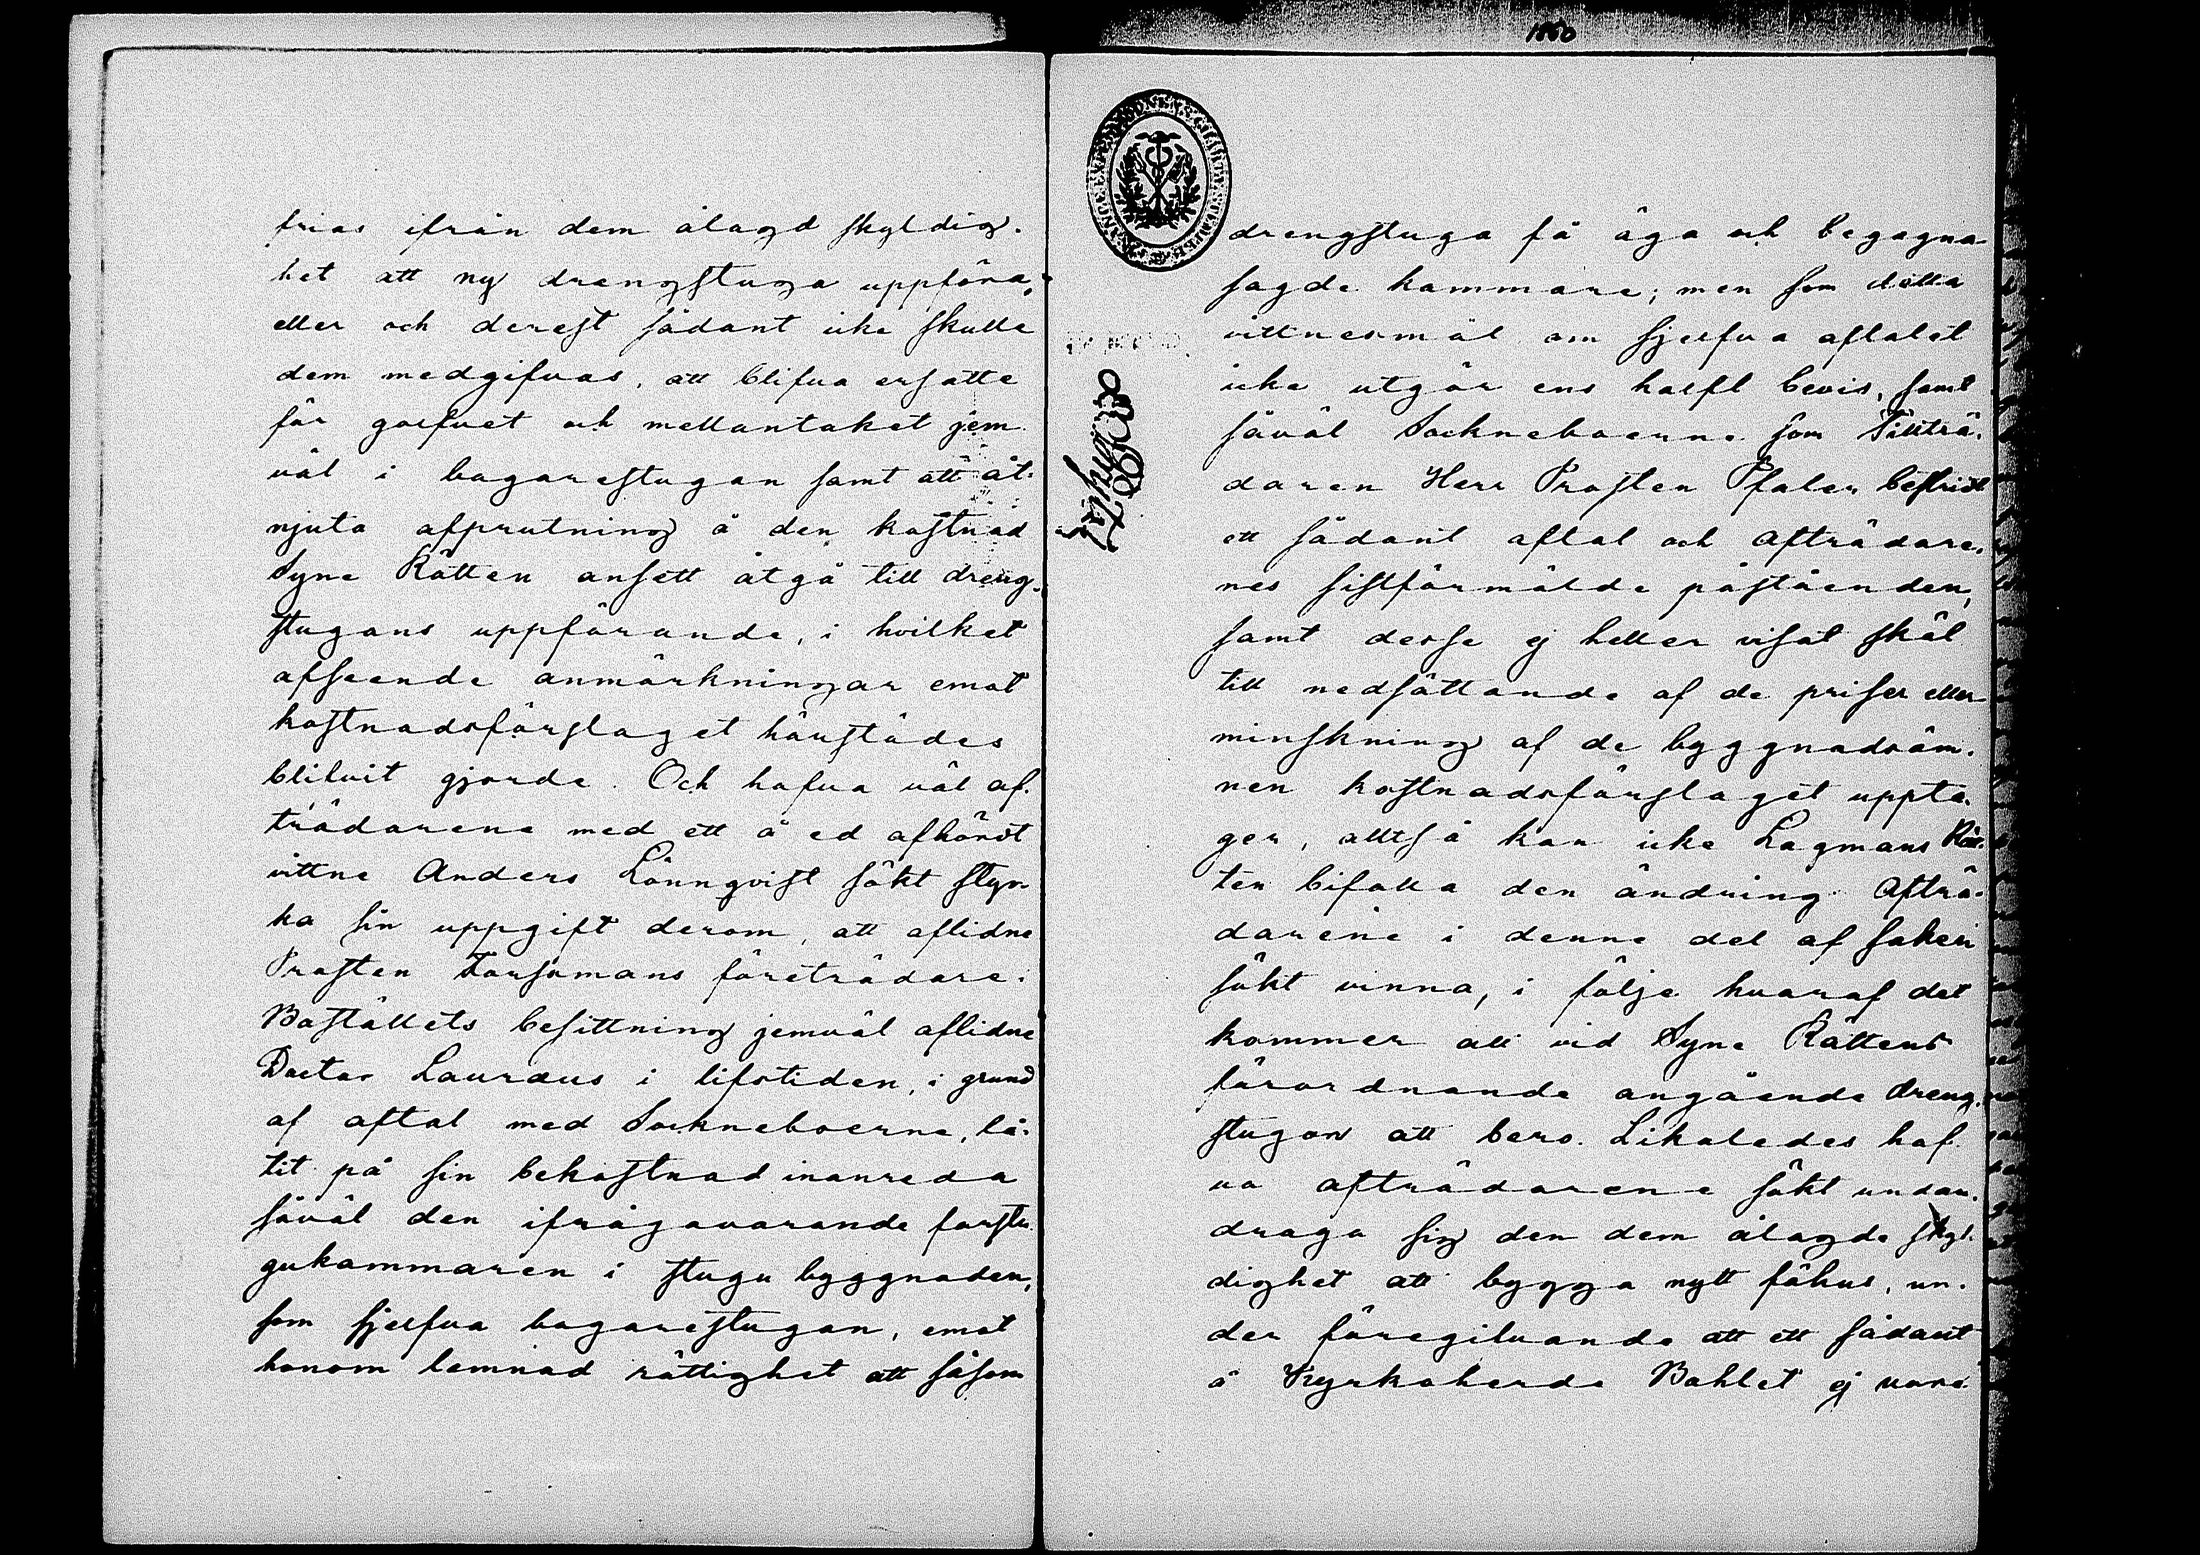 frias ifrån dem ålagd skyldig-
het att ny drengstuga uppföra,
eller och derest sådant icke skulle
dem medgifvas, att blifva ersatte
för golfvet och mellantaket jem
väl i bagarestugan samt att åt-
njuta afprutning å den kostnad
Syne Rätten ansett åtgå till dreng-
stugans uppförande, i hvilket
afseende anmärkningar emot
kostnadsförslaget härstädes
blifvit gjorde. Och hafva väl af-
trädarene med ett å ed afhördt
vittne Anders Lönnqvist sökt styr-
ka sin uppgift derom, att aflidne
Prosten Forsmans företrädare i
Boställets besittning jemväl aflidne
Doctor Lauræus i lifstiden, i grund
af aftal med Sockneboerne, lå-
tit på sin bekostnad inanreda
såväl den ifrågavarande farstu-
gukammaren i stugu byggnaden,
som sjelfva bagarestugan, emot
honom lemnad rättighet att såsom
1860
drengstuga få äga och begagna
sagde kammare; men som detta
vittnesmål om sjelfva aftalet
icke utgör ens halft bevis, samt
såväl Sockneboerne som Tillträ-
daren Herr Prosten Pfaler bestridt
ett sådant aftal och Afträdare-
nes sistförmälde påståenden,
samt desse ej heller visat skäl
till nedsättande af de priser eller
minskning af de byggnadsäm-
nen kostnadsförslaget uppta-
ger, alltså kan icke Lagmans Rät-
ten bifalla den ändring Afträ-
darene i denne del af saken
sökt vinna, i följe hvaraf det
kommer att vid Syne Rättens
förordnande angående dreng-
stugan att bero. Likaledes haf-
va afträdarene sökt undan-
draga sig den dem ålagde skyl-
dighet att bygga nytt fähus, un-
der föregifvande att ett sådant
å Kyrkoherde Bohlet ej vore